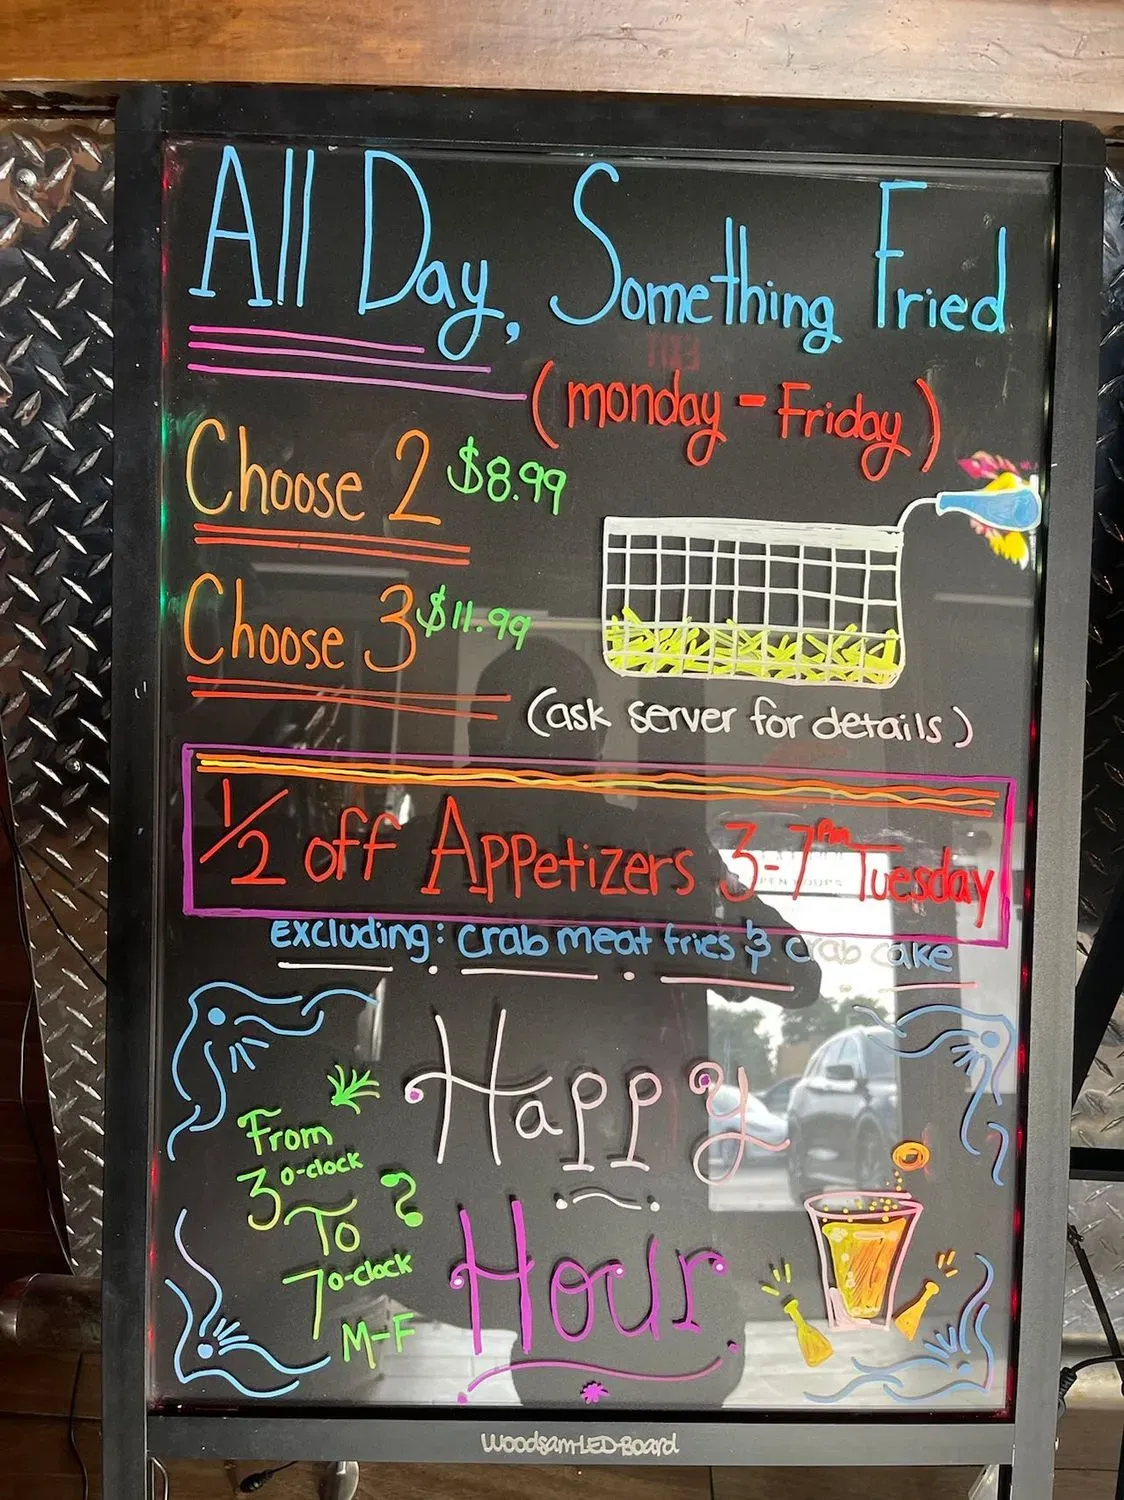 All Day, Something Fried
(monday - Friday)
Choose 2 $8.99
Choose 3 $11.99
(ask server for details)
1/2 off Appetizers 3-7pm Tuesday
Excluding: crab meat fries & crab cake
Happy
Hour
From
3 o-clock
To
7 o-clock
M-F
Woodsam-LED-Board